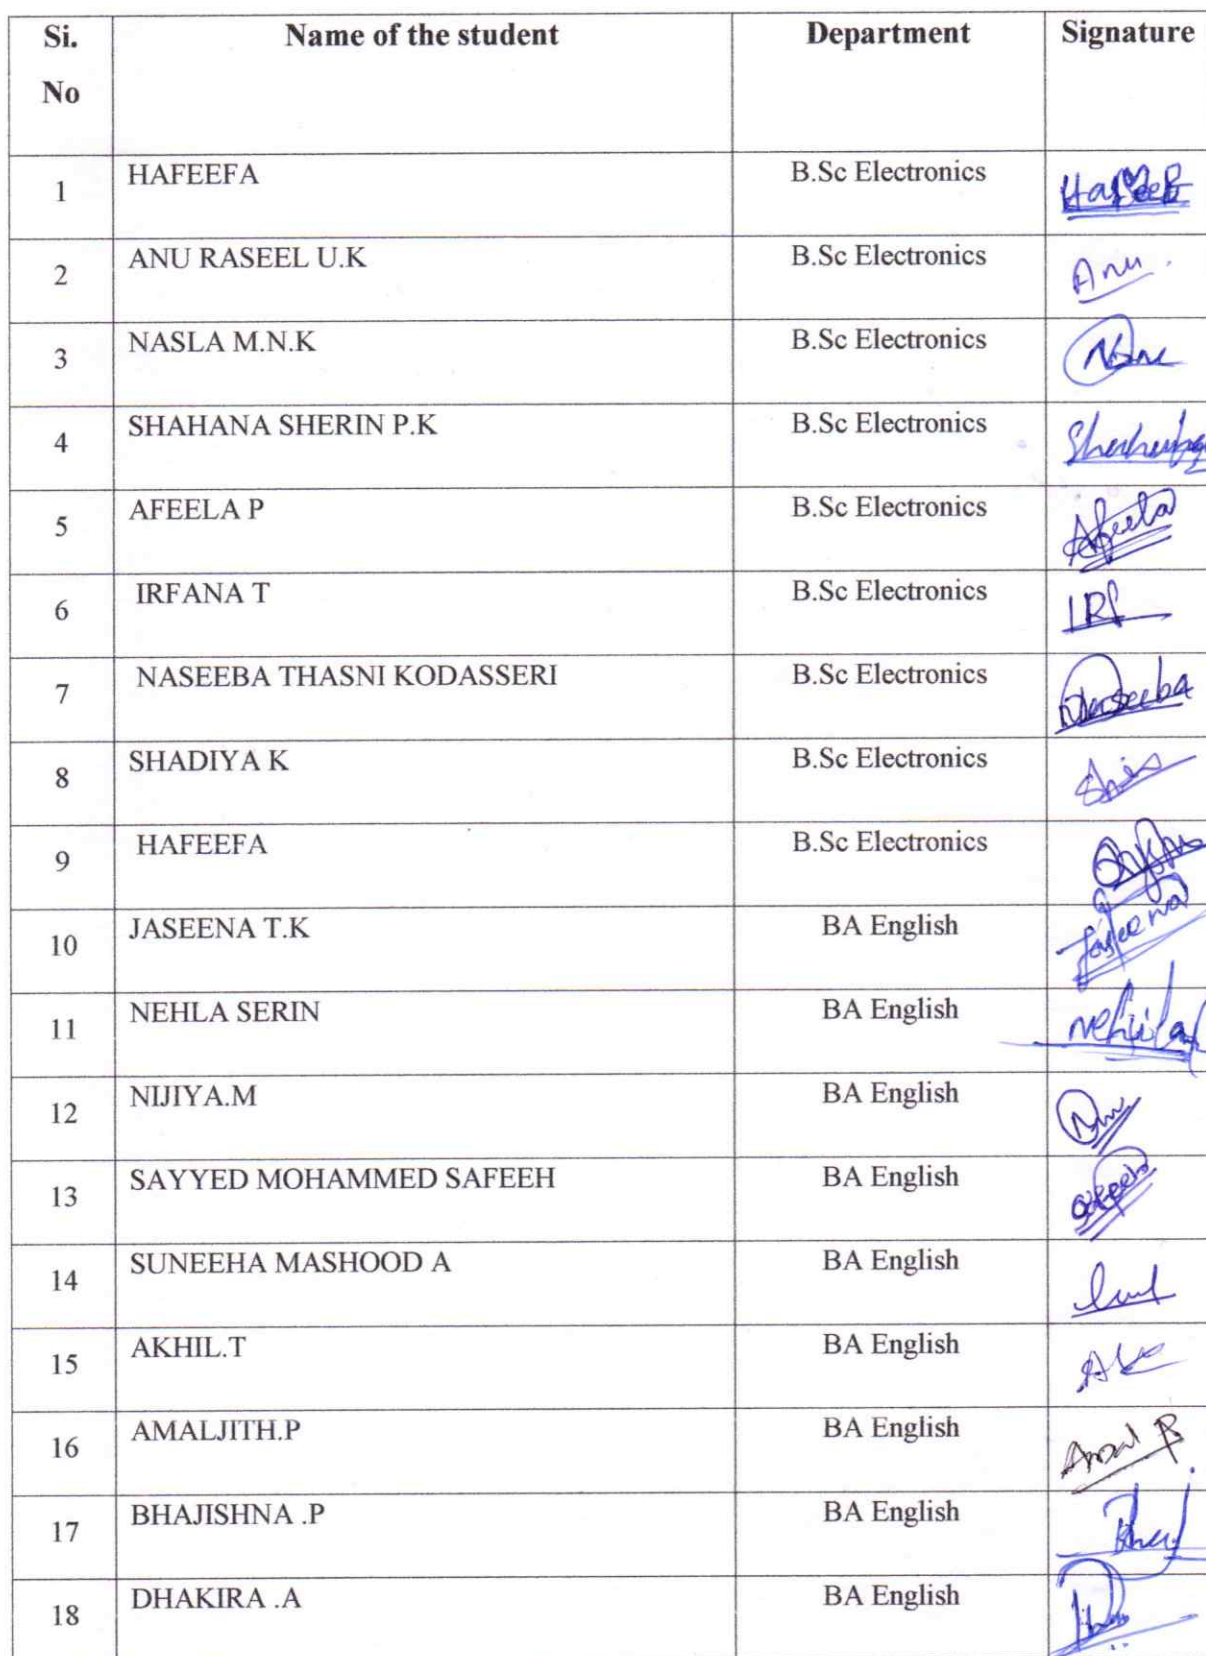 Si. No Name of the student Department Signature
1 HAFEEFA B.Sc Electronics
2 ANU RASEEL U.K B.Sc Electronics Anu.
3 NASLA M.N.K B.Sc Electronics
4 SHAHANA SHERIN P.K B.Sc Electronics
5 AFEELA P B.Sc Electronics Afeela
6 IRFANA T B.Sc Electronics IRf
7 NASEEBA THASNI KODASSERI B.Sc Electronics Naseeba
8 SHADIYA K B.Sc Electronics
9 HAFEEFA B.Sc Electronics
10 JASEENA T.K BA English Jaseena
11 NEHLA SERIN BA English
12 NIJIYA.M BA English
13 SAYYED MOHAMMED SAFEEH BA English
14 SUNEEHA MASHOOD A BA English
15 AKHIL.T BA English
16 AMALJITH.P BA English
17 BHAJISHNA .P BA English
18 DHAKIRA .A BA English